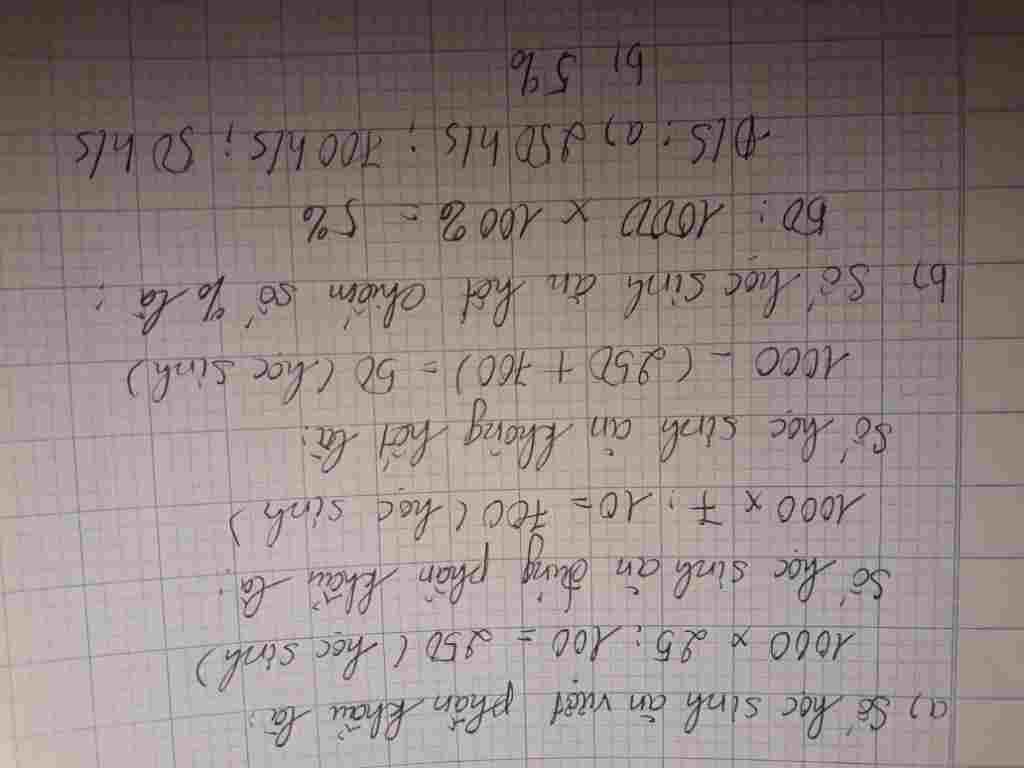 a) Số học sinh ăn vượt phần khẩu là:
1000 x 25 : 100 = 250 (học sinh)
Số học sinh ăn đúng phần khẩu là:
1000 x 7 : 10 = 700 (học sinh)
Số học sinh ăn không hết là:
1000 - (250 + 700) = 50 (học sinh)
b) Số học sinh ăn hết chiếm số % là:
50 : 1000 x 100% = 5%
Đ/S: a) 250 h/s ; 700 h/s ; 50 h/s
b) 5%